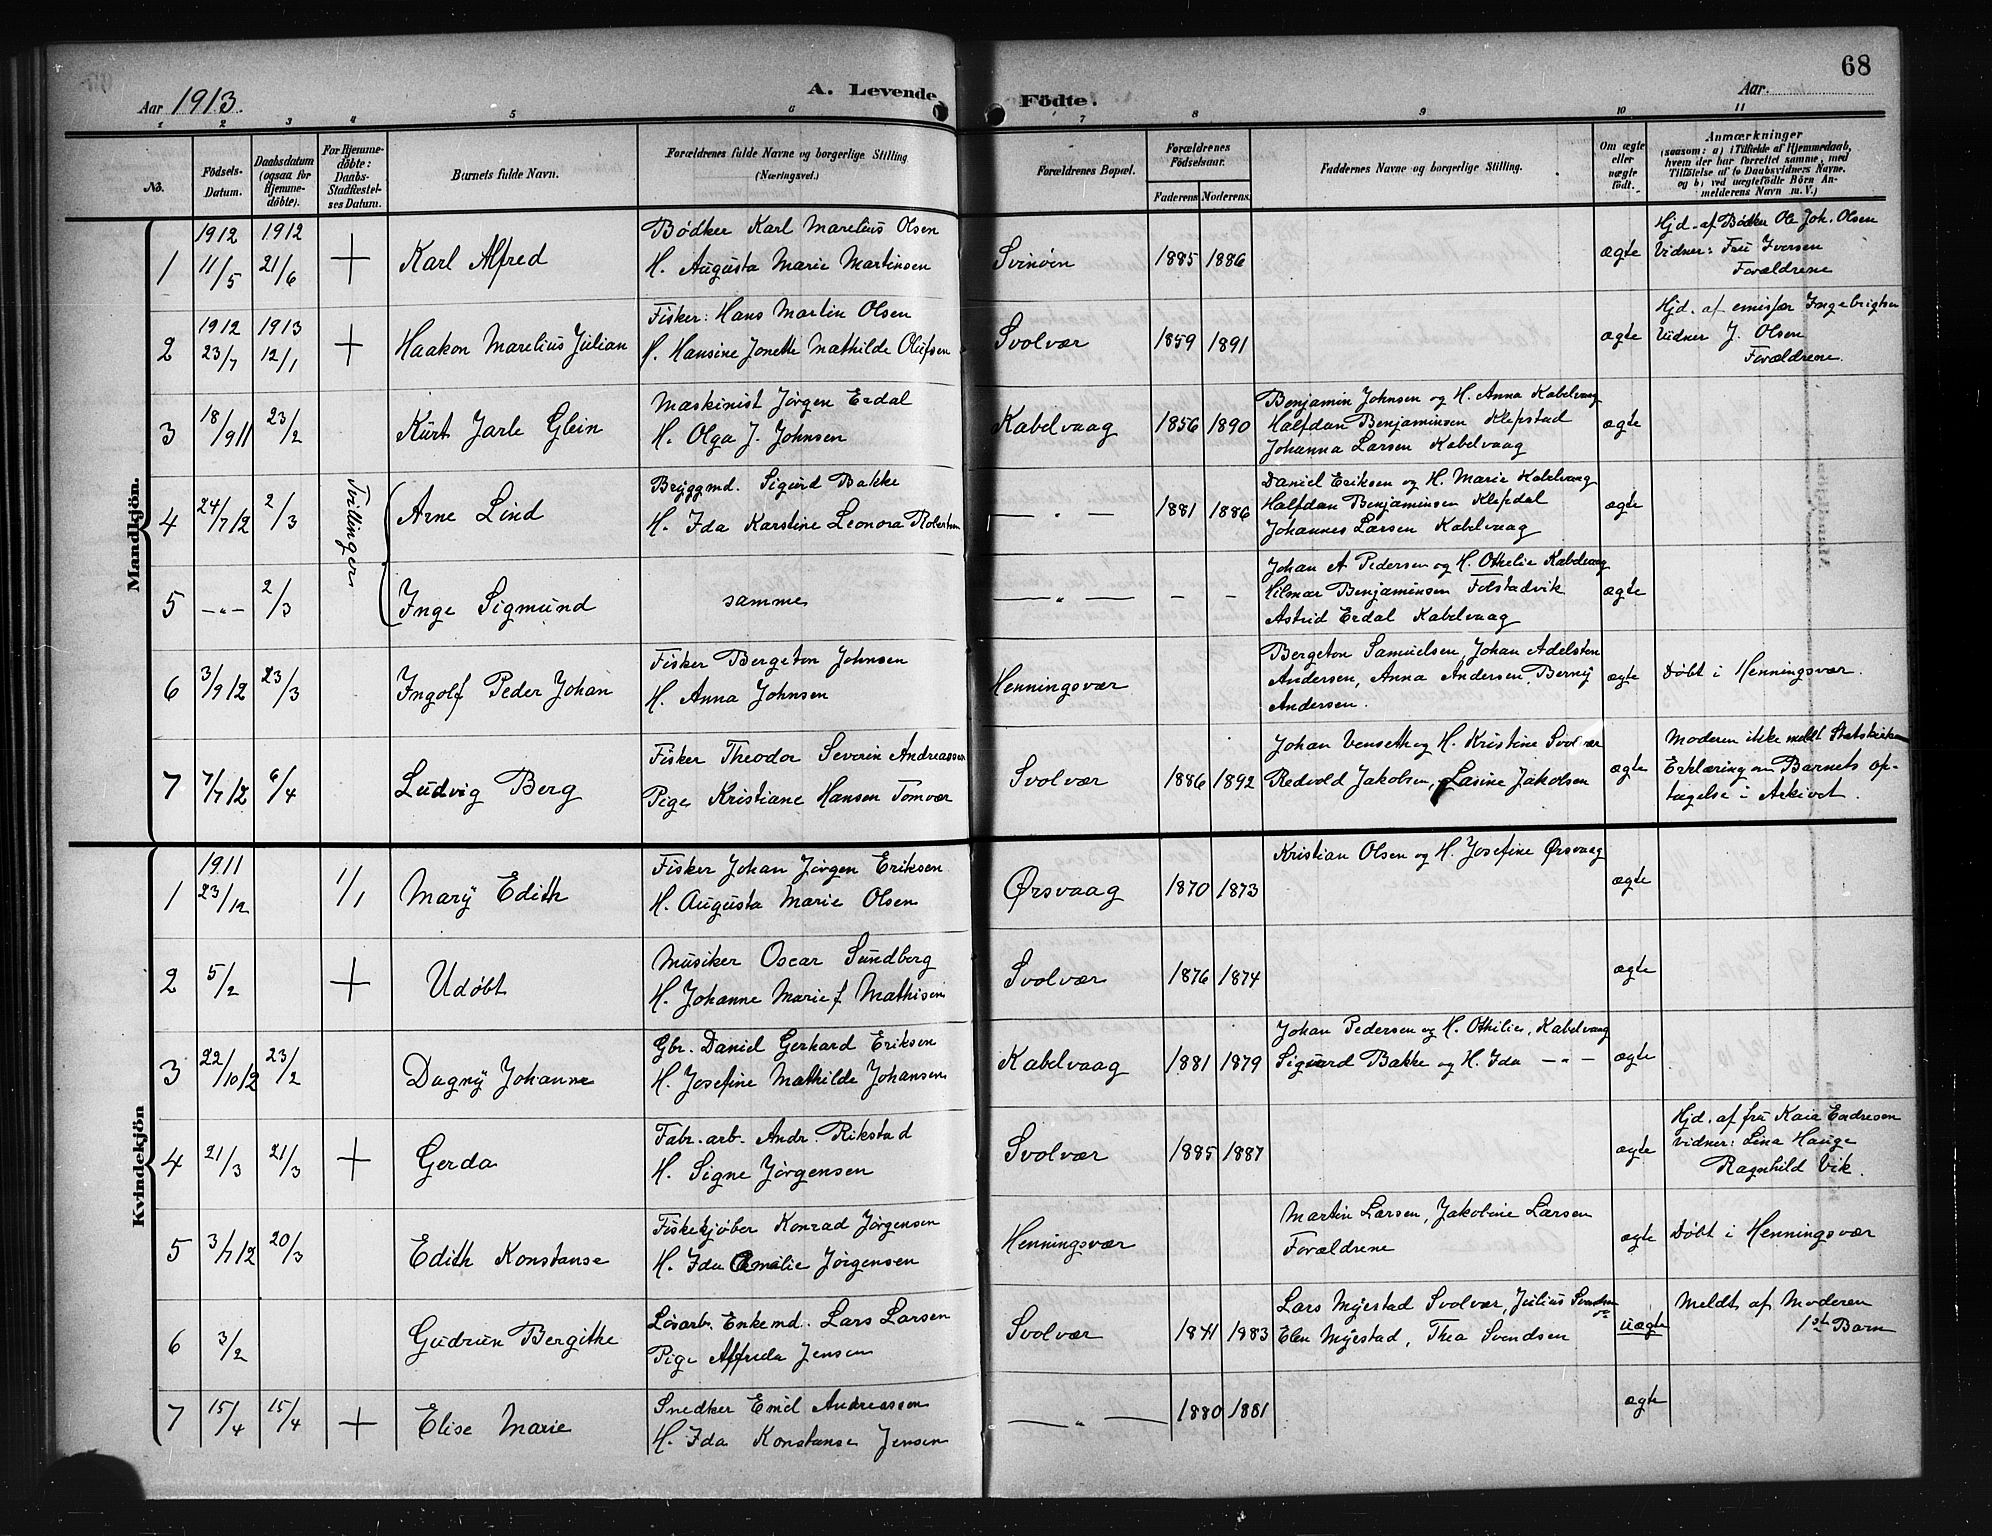 68
Aar 1913.
A. Levende
Födte.
Aar.
1 2 3 4 5 6 7 8 9 10 11
No.
Födsels-Datum.
Daabsdatum (ogsaa for Hjemme-döbte).
For Hjemme-döbte: Daabs-Stadfæstel-ses Datum.
Barnets fulde Navn.
Forældrenes fulde Navne og borgerlige Stilling (Næringsvei.)
Forældrenes Bopæl.
Forældrenes Födselsaar.
Faderens Moderens.
Faddernes Navne og borgerlige Stilling.
Om ægte eller uægte födt.
Anmærkninger
(saasom: a) i Tilfælde af Hjemmedaab,
hvem der har forrettet samme, med
Tilföielse af to Daabsvidners Navne,
og b) ved uægtefödte Börn An-
melderens Navn m. V.)
Mandkjön.
1912 1912 Bödker Karl Marelius Olsen Hjd. af Bödker Ole Joh. Olsen
1 11/5 21/6 + Karl Alfred Svinöen 1885 1886 ægte Vidner: Fru Iversen
H. Augusta Marie Martinsen Forældrene
1912 1913 Fisker: Hans Martin Olsen Hjd. af emisfær Ingebrigtsen
2 23/7 12/1 + Haakon Marelius Julian Svolvær 1859 1891 ægte Vidner J. Olsen
H. Hansine Jonette Mathilde Olufsen Forældrene.
Maskinist Jørgen Erdal Benjamin Johnsen og H. Anna Kabelvaag
3 18/9 11 23/2 Kurt Jarle Glein Kabelvaag 1856 1890 Halfdan Benjaminsen Klepstad ægte
H. Olga J. Johnsen Johanna Larsen Kabelvaag
Tvillinger
Bryggmd. Sigurd Bakke Daniel Eriksen og H. Marie Kabelvaag
4 24/7 12 2/3 Arne Lind — " — 1881 1886 Halfdan Benjaminsen Klepdal ægte
H. Ida Karstine Leonora Robertsen Johannes Larsen Kabelvaag
Johan A Pedersen og H. Othelie Kabelvaag
5 — " — 2/3 Inge Sigmund samme — " — - - Hilmar Benjaminsen Folstadvik ægte
Astrid Erdal Kabelvaag
Fisker Bergeton Johnsen Bergeton Samuelsen, Johan Adelsten
6 3/9 12 23/3 Ingolf Peder Johan Henningsvær Andersen, Anna Andersen, Berny ægte Døbt i Henningsvær.
H. Anna Johnsen Andersen.
Fisker Theodor Severin Andreassen Johan Vensett og H. Kristine Svolvær Moderen ikke meldt Statskirken
7 7/7 12 6/4 Ludvig Berg Svolvær 1886 1892 Redvold Jakolsen, Lasine Jakolsen ægte Erklæring om Barnets op-
Pige Kristiane Hansen Tomvær tagelse i Arkivet.
Kvindekjön
1911 Fisker Johan Jørgen Eriksen Kristian Olsen og H. Josefine Ørsvaag
1 23/12 1/1 Mary Edith Ørsvaag 1870 1873 ægte
H. Augusta Marie Olsen
Musiker Oscar Sundberg
2 5/2 + Udøbt Svolvær 1876 1874 ægte
H. Johanne Marie f Mathisen
Gbr. Daniel Gerhard Eriksen Johan Pedersen og H. Othilie, Kabelvaag
3 22/10 12 23/2 Dagny Johanne Kabelvaag 1881 1879 Sigurd Bakke og H. Ida — " — ægte
H. Josefine Mathilde Johansen
Fabr. arb. Andr. Rikstad Hjd. af fru Kaia Endresen
4 21/3 21/3 + Gerda Svolvær 1885 1887 ægte vidner: Lina Hauge
H. Signe Jørgensen Ragnhild Vik.
Fiskekjøber Konrad Jørgensen Martin Larsen, Jakoline Larsen
5 3/7 12 20/3 Edith Konstanse Henningsvær Forældrene ægte Døbt i Henningsvær
H. Ida Amalie Jørgensen
Løsarb. Enkemd. Lars Larsen Lars Myestad Svolvær, Julius Svendsen Meldt af Moderen
6 3/2 Gudrun Bergithe Svolvær 1841 1883 Elen Myestad, Thea Svendsen uægte 1ste Barn
Pige Alfrida Jensen
Snedker Emil Andreassen
7 15/4 15/4 + Elise Marie — " — 1880 1881 ægte
H. Ida Konstanse Jensen